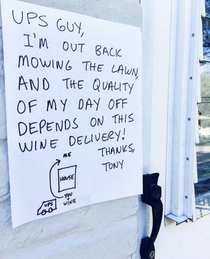 UPS GUY,
I'M OUT BACK
MOWING THE LAWN,
AND THE QUALITY
OF MY DAY OFF
DEPENDS ON THIS
WINE DELIVERY!
THANKS,
TONY
ME
HOUSE
YOU
WINE
UPS